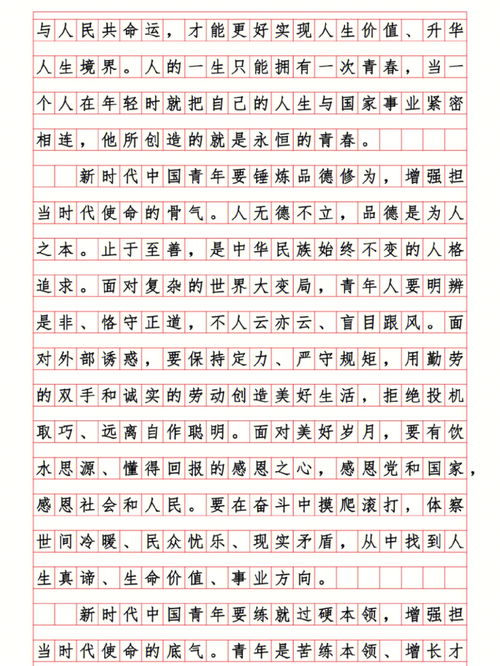 与人民共命运，才能更好实现人生价值、升华
人生境界。人的一生只能拥有一次青春，当一
个人在年轻时就把自己的人生与国家事业紧密
相连，他所创造的就是永恒的青春。
新时代中国青年要锤炼品德修为，增强担
当时代使命的骨气。人无德不立，品德是为人
之本。止于至善，是中华民族始终不变的人格
追求。面对复杂的世界大变局，青年人要明辨
是非、恪守正道，不人云亦云、盲目跟风。面
对外部诱惑，要保持定力、严守规矩，用勤劳
的双手和诚实的劳动创造美好生活，拒绝投机
取巧、远离自作聪明。面对美好岁月，要有饮
水思源、懂得回报的感恩之心，感恩党和国家，
感恩社会和人民。要在奋斗中摸爬滚打，体察
世间冷暖、民众忧乐、现实矛盾，从中找到人
生真谛、生命价值、事业方向。
新时代中国青年要练就过硬本领，增强担
当时代使命的底气。青年是苦练本领、增长才